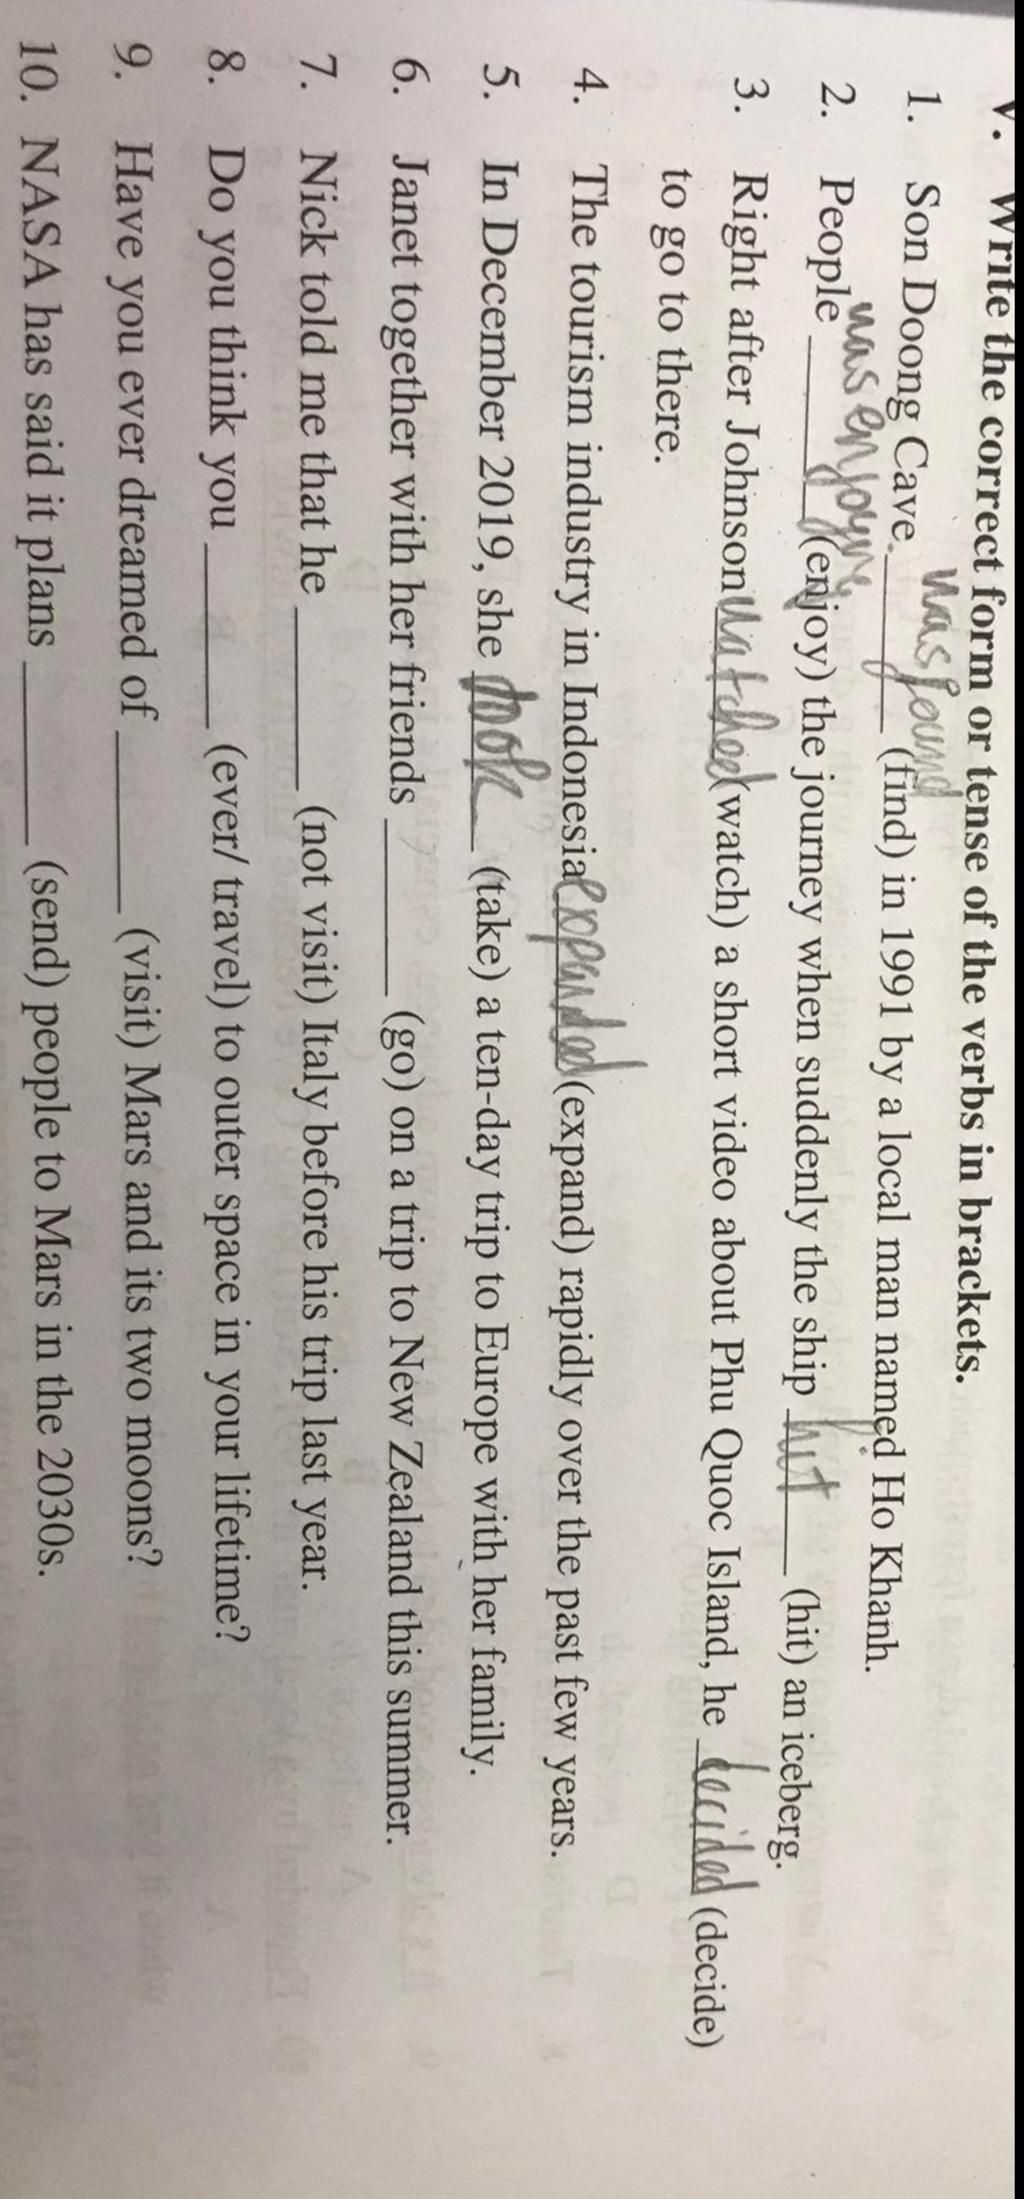 V. Write the correct form or tense of the verbs in brackets.
was found
1. Son Doong Cave ______ (find) in 1991 by a local man named Ho Khanh.
was enjoying
2. People ______ (enjoy) the journey when suddenly the ship hit (hit) an iceberg.
3. Right after Johnson watched (watch) a short video about Phu Quoc Island, he decided (decide)
to go to there.
4. The tourism industry in Indonesia expanded (expand) rapidly over the past few years.
5. In December 2019, she took (take) a ten-day trip to Europe with her family.
6. Janet together with her friends ______ (go) on a trip to New Zealand this summer.
7. Nick told me that he ______ (not visit) Italy before his trip last year.
8. Do you think you ______ (ever/ travel) to outer space in your lifetime?
9. Have you ever dreamed of ______ (visit) Mars and its two moons?
10. NASA has said it plans ______ (send) people to Mars in the 2030s.